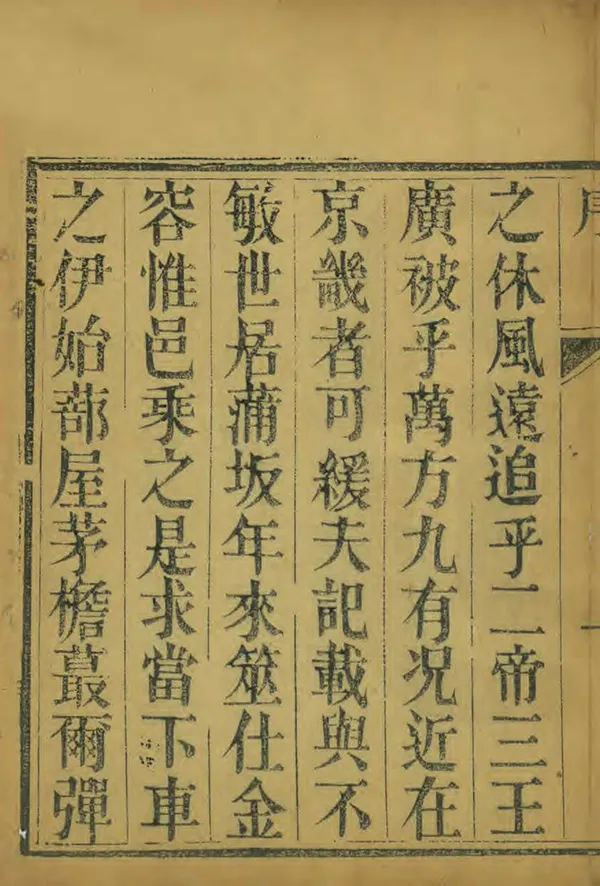 序
之休風遠追乎二帝三王
廣被乎萬方九有况近在
京畿者可緩夫記載與不
敏世居蒲坂年來筮仕金
容惟邑乘之是求當下車
之伊始蔀屋茅檐蕞爾彈